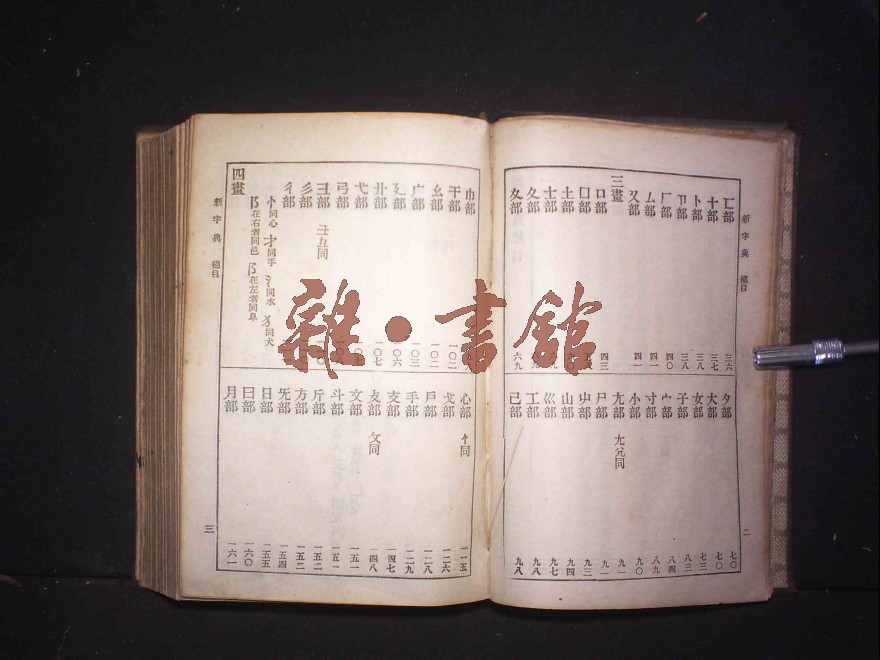 新字典 總目
匸部 三六
十部 三七
卜部 三八
卩部 三八
厂部 四〇
厶部 四一
又部 四一
三畫
口部 四三
囗部
土部
士部
夂部
夊部 六九
夕部 七〇
大部 七〇
女部 七三
子部 八三
宀部 八四
寸部 八九
小部 九〇
尢部 尣兀同 九一
尸部 九一
屮部 九三
山部 九四
巛部 九七
工部 九八
己部 九八
二
巾部
干部 一〇二
幺部 一〇二
广部 一〇三
廴部 一〇六
廾部 一〇七
弋部
弓部
彐部 彑同
彡部
彳部
忄同心 扌同手 氵同水 犭同犬
阝在右者同邑 阝在左者同阜
四畫
心部 忄同 一一五
戈部 一二六
戶部 一二八
手部 一二九
支部 一四七
攴部 攵同 一四八
文部 一五一
斗部 一五一
斤部 一五二
方部 一五二
旡部 一五四
日部 一五五
曰部 一六〇
月部 一六一
新字典 總目
三
雜·書館